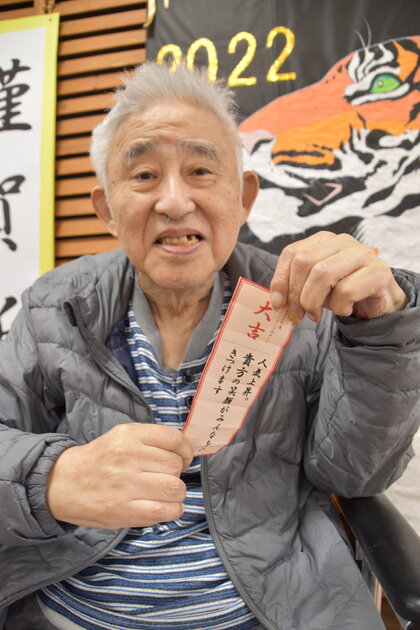 2022
謹
賀
大吉
人気上昇。
貴方の笑顔がみんなを
ひきつけます